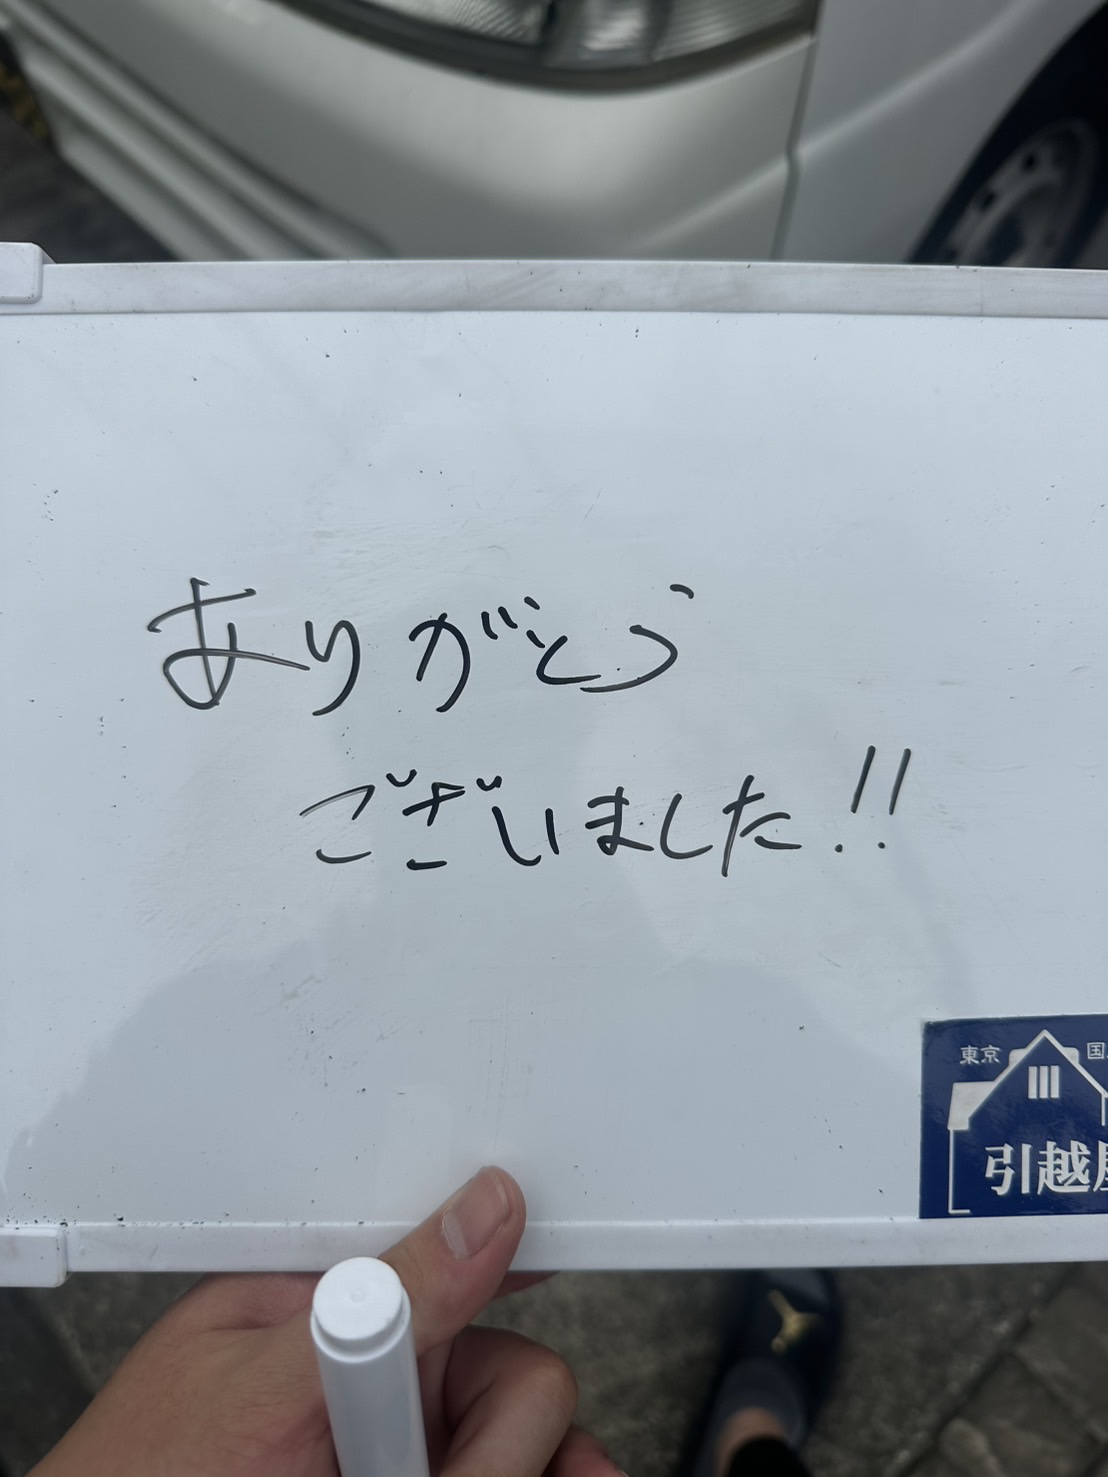 ありがとう
ございました!!
東京
引越